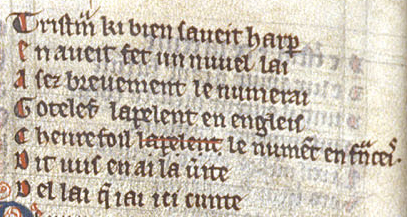 Tristm̃ ki bien saveit harp
en aveit fet un nuvel lai
Asez brevement le numerai
Gotelef lapelent en engleis
Chevrefoil lapelent le numẽt en frãceis.
Dit vus en ai la ũite
Del lai q̃ iai ici cunte